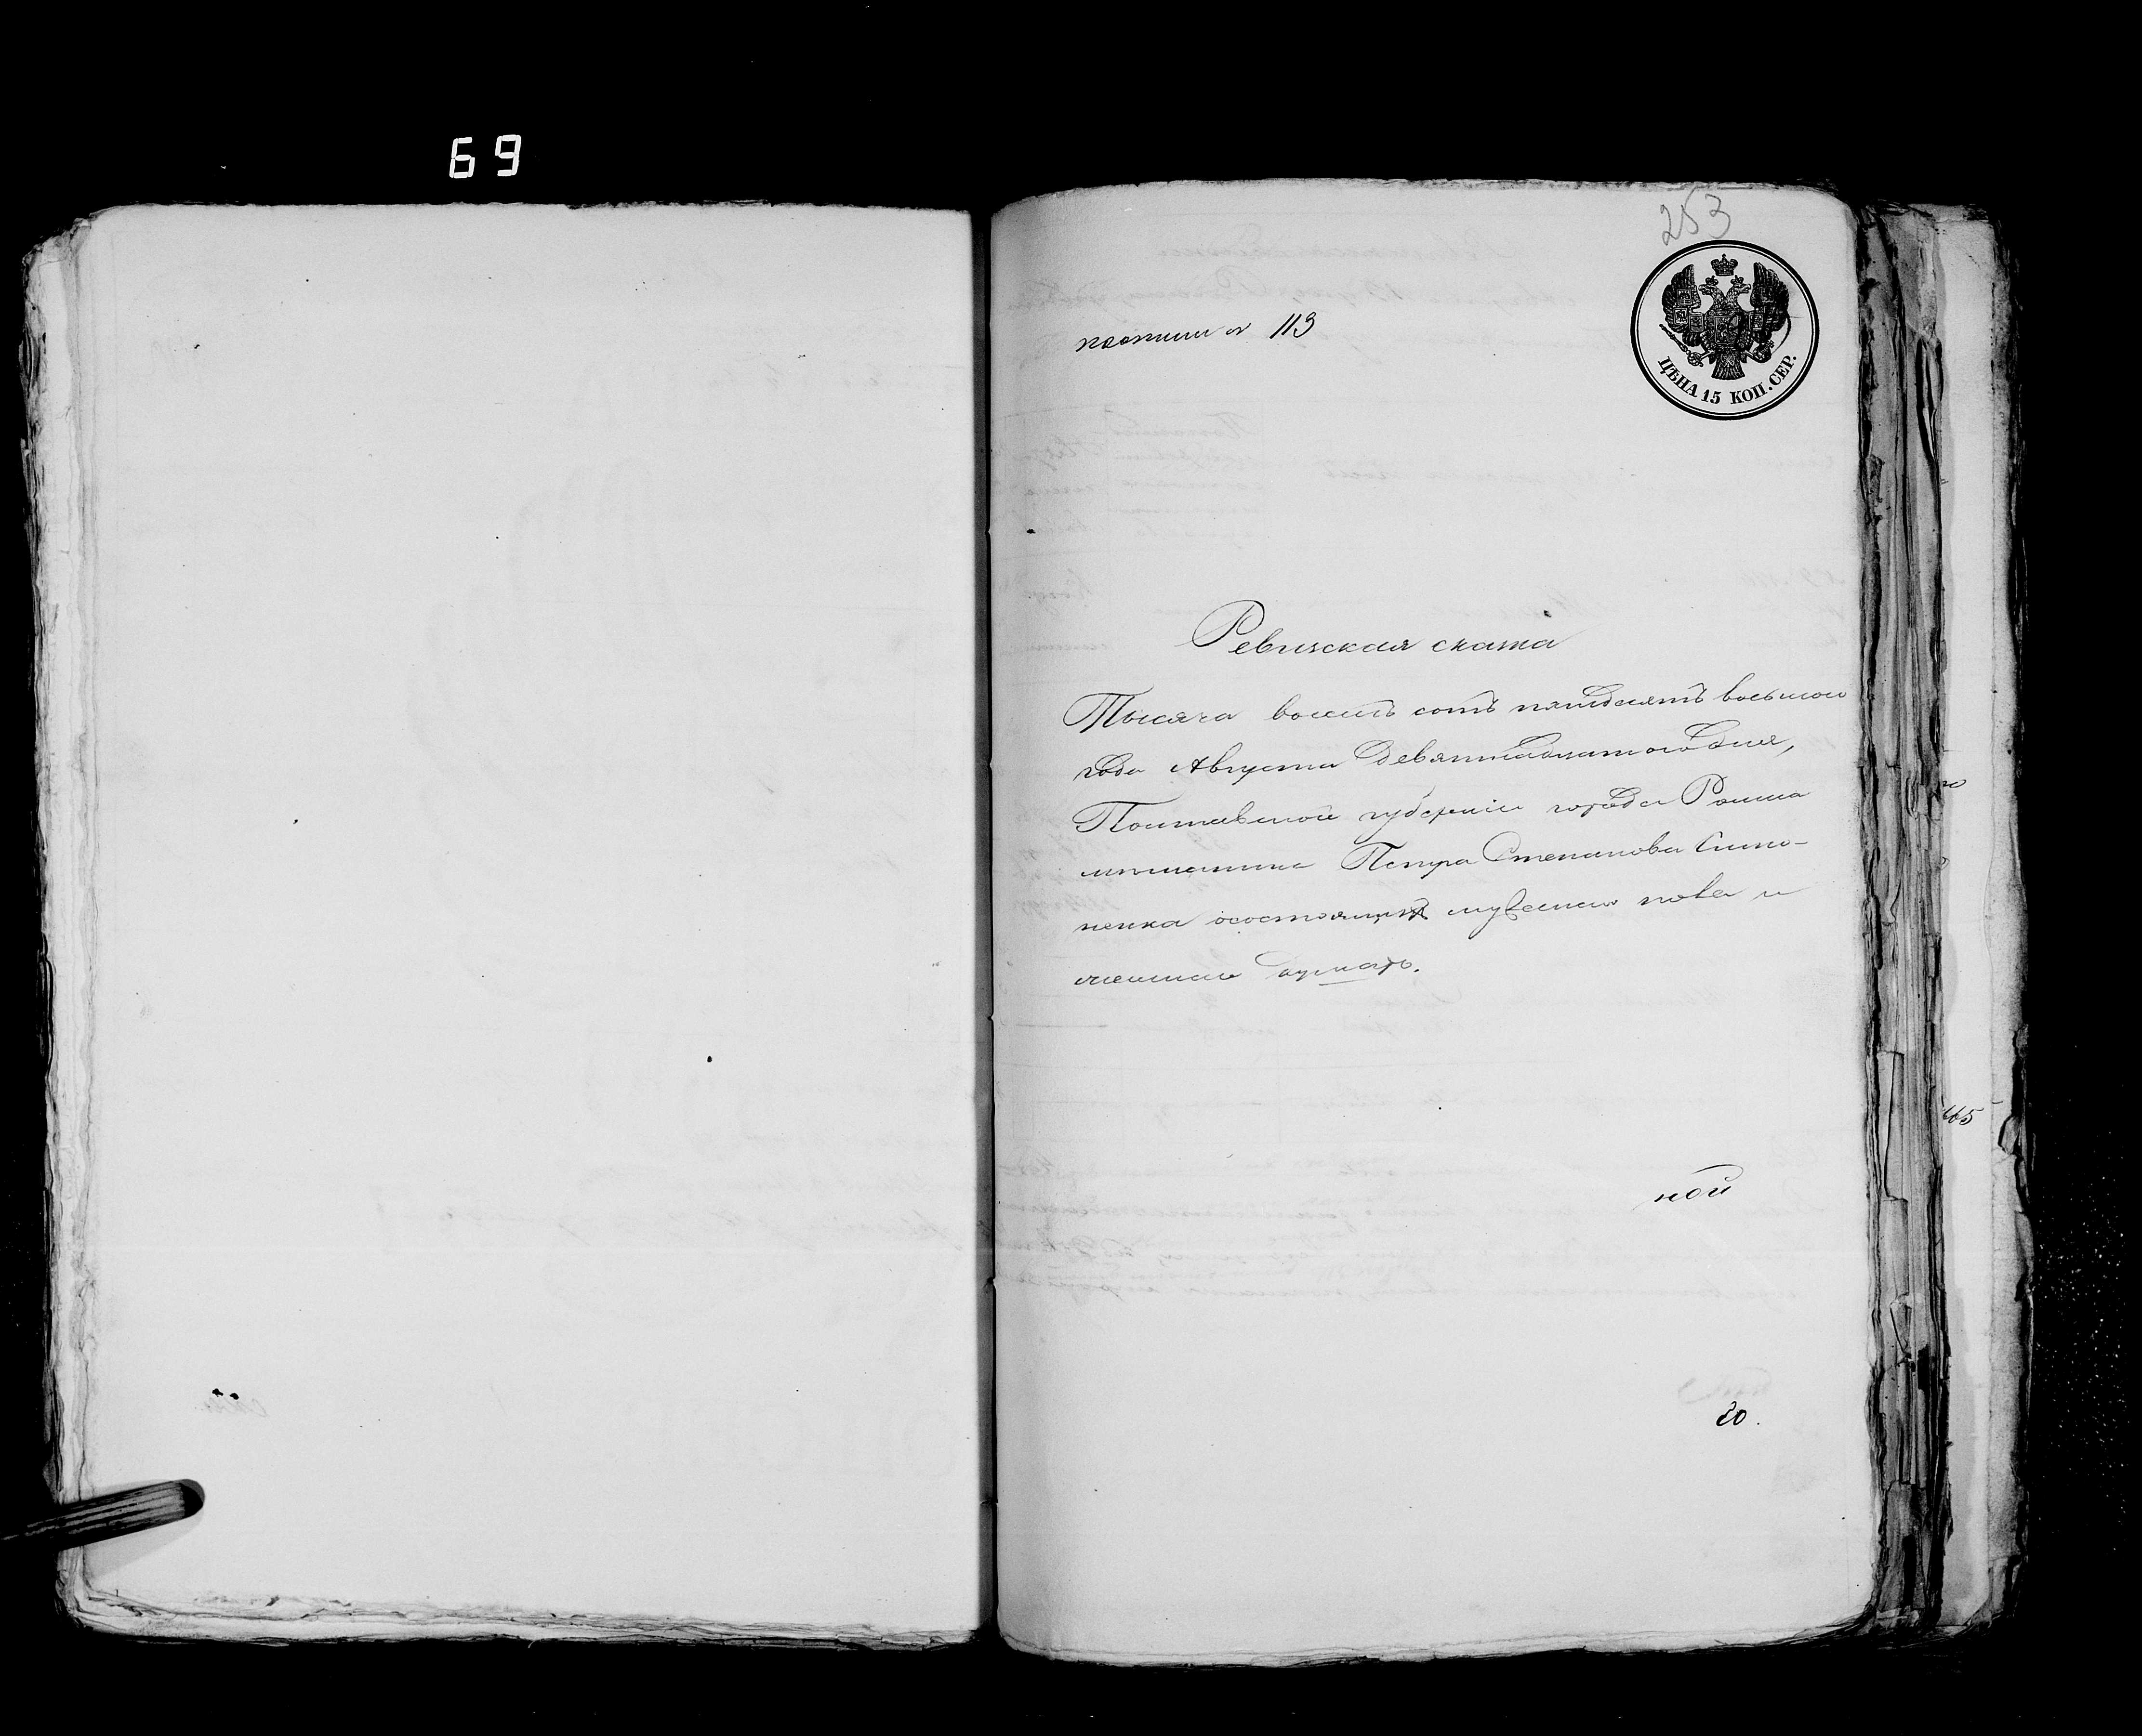 69
253
113
ЦѢНА 15 КОП. СЕР.
Ревизская сказка
Тысяча восемь сотъ пятдесятъ восьмого
года Августа Девятнадцатого дня,
Полтавской губерніи города Ромна
мѣщанина Петра Степанова
ненка осостоящихъ мужеска пола и
женска душахъ.
ной
20.
465